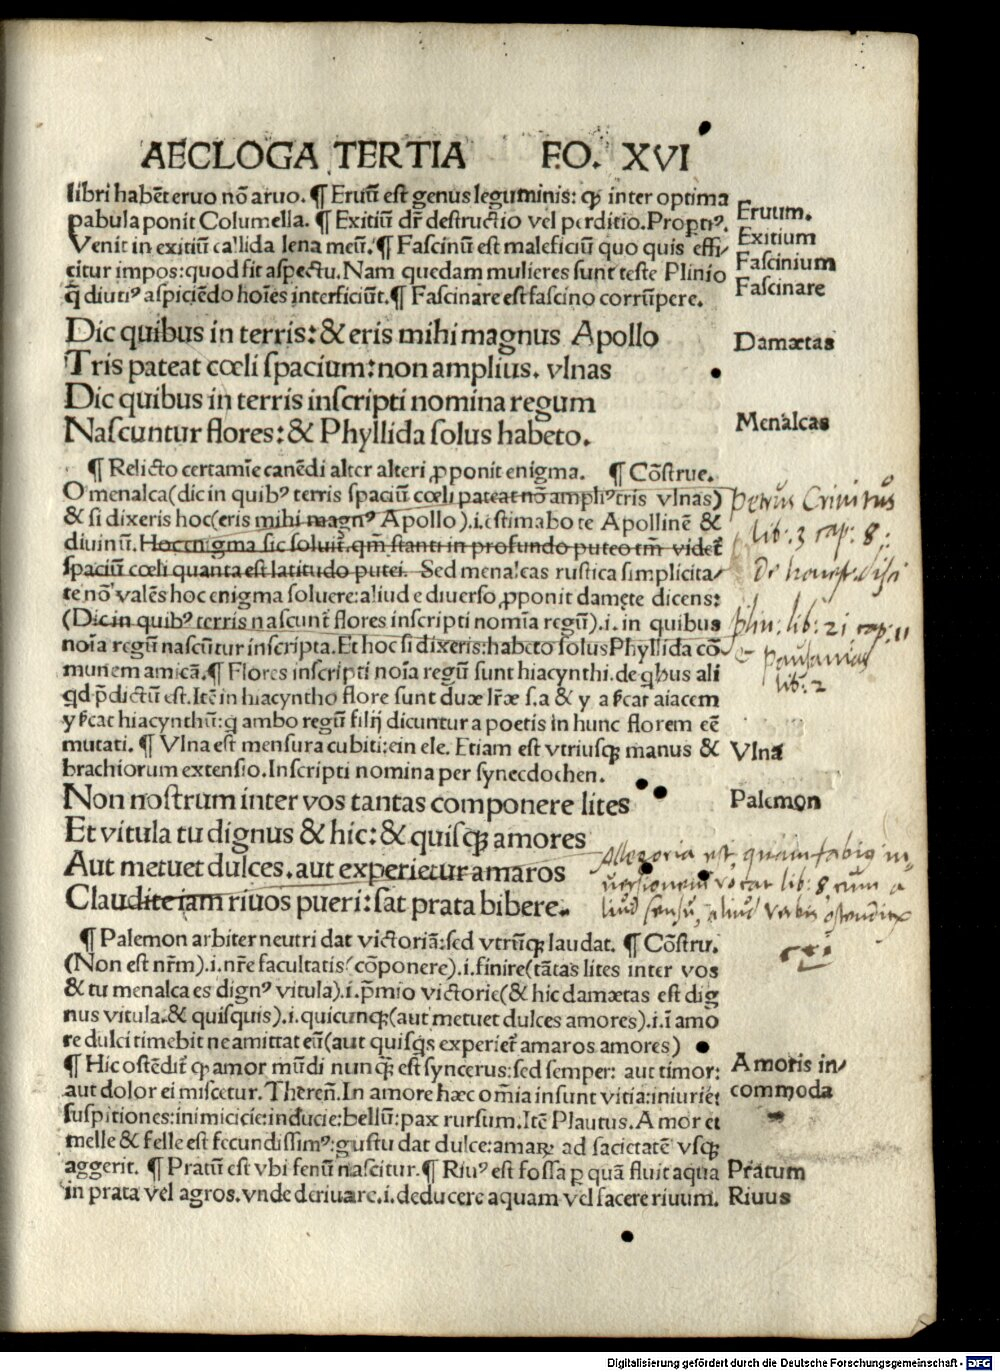 AECLOGA TERTIA FO. XVI
libri habēt eruo nō aruo. ¶ Eruū est genus leguminis: ꝙ inter optima
pabula ponit Columella. ¶ Exitiū dr̄ destructio vel perditio. Propti⁹.
Venit in exitiū callida lena meū. ¶ Fascinū est maleficiū quo quis effi/
citur impos: quod fit aspectu. Nam quedam mulieres sunt teste Plinio
q̄ diuti⁹ aspiciēdo hoīes interficiūt. ¶ Fascinare est fascino corrūpere.
Eruum.
Exitium
Fascinium
Fascinare
Dic quibus in terris: & eris mihi magnus Apollo
Tris pateat cœli spacium: non amplius. vlnas
Dic quibus in terris inscripti nomina regum
Nascuntur flores: & Phyllida solus habeto.
Damætas
Menalcas
¶ Relicto certamīe canēdi alter alteri ꝓponit enigma. ¶ Cōstrue.
O menalca (dic in quib⁹ terris spaciū cœli pateat nō ampli⁹ tris vlnas)
& si dixeris hoc (eris mihi magn⁹ Apollo) .i. estimabo te Apollinē &
diuinū. Hoc enigma sic soluit̄. qm̄ stanti in profundo puteo tm̄ videt̄
spaciū cœli quanta est latitudo putei. Sed menalcas rustica simplicita/
te nō valēs hoc enigma soluere: aliud e diuerso ꝓponit damęte dicens:
(Dic in quib⁹ terris nascunt̄ flores inscripti nomīa regū) .i. in quibus
noīa regū nascūtur inscripta. Et hoc si dixeris: habeto solus Phyllida cō
munem amicā. ¶ Flores inscripti noīa regū sunt hiacynthi. de qbus ali
qd p̄dictū est. Itē in hiacyntho flore sunt duæ lr̄æ s. a & y a ſ̄cat aiacem
y ſ̄cat hiacynthū: q ambo regū filij dicuntur a poetis in hunc florem eē
mutati. ¶ Vlna est mensura cubiti: ein ele. Etiam est vtriusqꝫ manus &
brachiorum extensio. Inscripti nomina per synecdochen.
Petrus Crinitus
lib: 3 cap: 8:
De honest: disci
plin: lib: 21 cap: 11
& pausanias
lib: 2
Vlna
Non nostrum inter vos tantas componere lites
Et vitula tu dignus & hic: & quisqꝫ amores
Aut metuet dulces. aut experietur amaros
Claudite iam riuos pueri: sat prata bibere.
Palemon
Allegoria est, quam fabiꝰ in_
uersionem vocat lib: 8 cum a
liud sensu, aliud verbis ostenditur
¶ Palemon arbiter neutri dat victoriā: sed vtrūqꝫ laudat. ¶ Cōstru.
(Non est nr̄m) .i. nr̄e facultatis (cōponere) .i. finire (tātas lites inter vos
& tu menalca es dign⁹ vitula) .i. p̄mio victorie (& hic damætas est dig
nus vitula. & quisquis) .i. quicunqꝫ (aut metuet dulces amores) .i. ī amo
re dulci timebit ne amittat eū (aut quisqs experiet̄ amaros amores)
¶ Hic ostēdit̄ ꝙ amor mūdi nunqꝫ est syncerus: sed semper: aut timor:
aut dolor ei miscetur. Theren̄. In amore hæc om̄ia insunt vitia: iniurie:
suspitiones: inimicicie: inducie: bellū: pax rursum. Itē Plautus. Amor et
melle & felle est fecundissim⁹: gustu dat dulce: amaꝝ ad sacietatē vsqꝫ
aggerit. ¶ Pratū est vbi fenū nascitur. ¶ Riu⁹ est fossa ꝑ quā fluit aqua
in prata vel agros. vnde deriuare. i. deducere aquam vel facere riuum.
Amoris in/
commoda
Pratum
Riuus
Digitalisierung gefördert durch die Deutsche Forschungsgemeinschaft - DFG